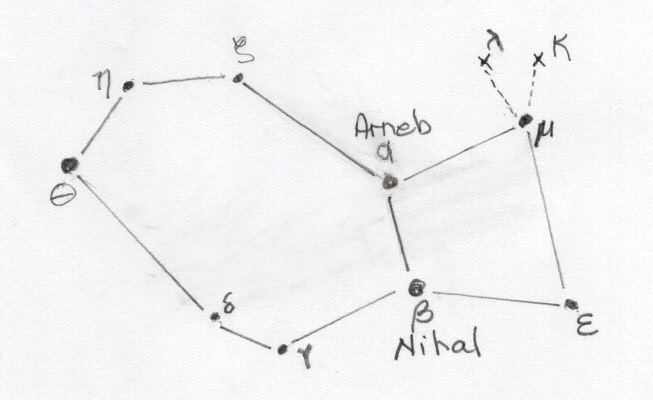 ζ
λ
κ
η
Arneb
α
μ
θ
δ
β
ε
γ
Nihal